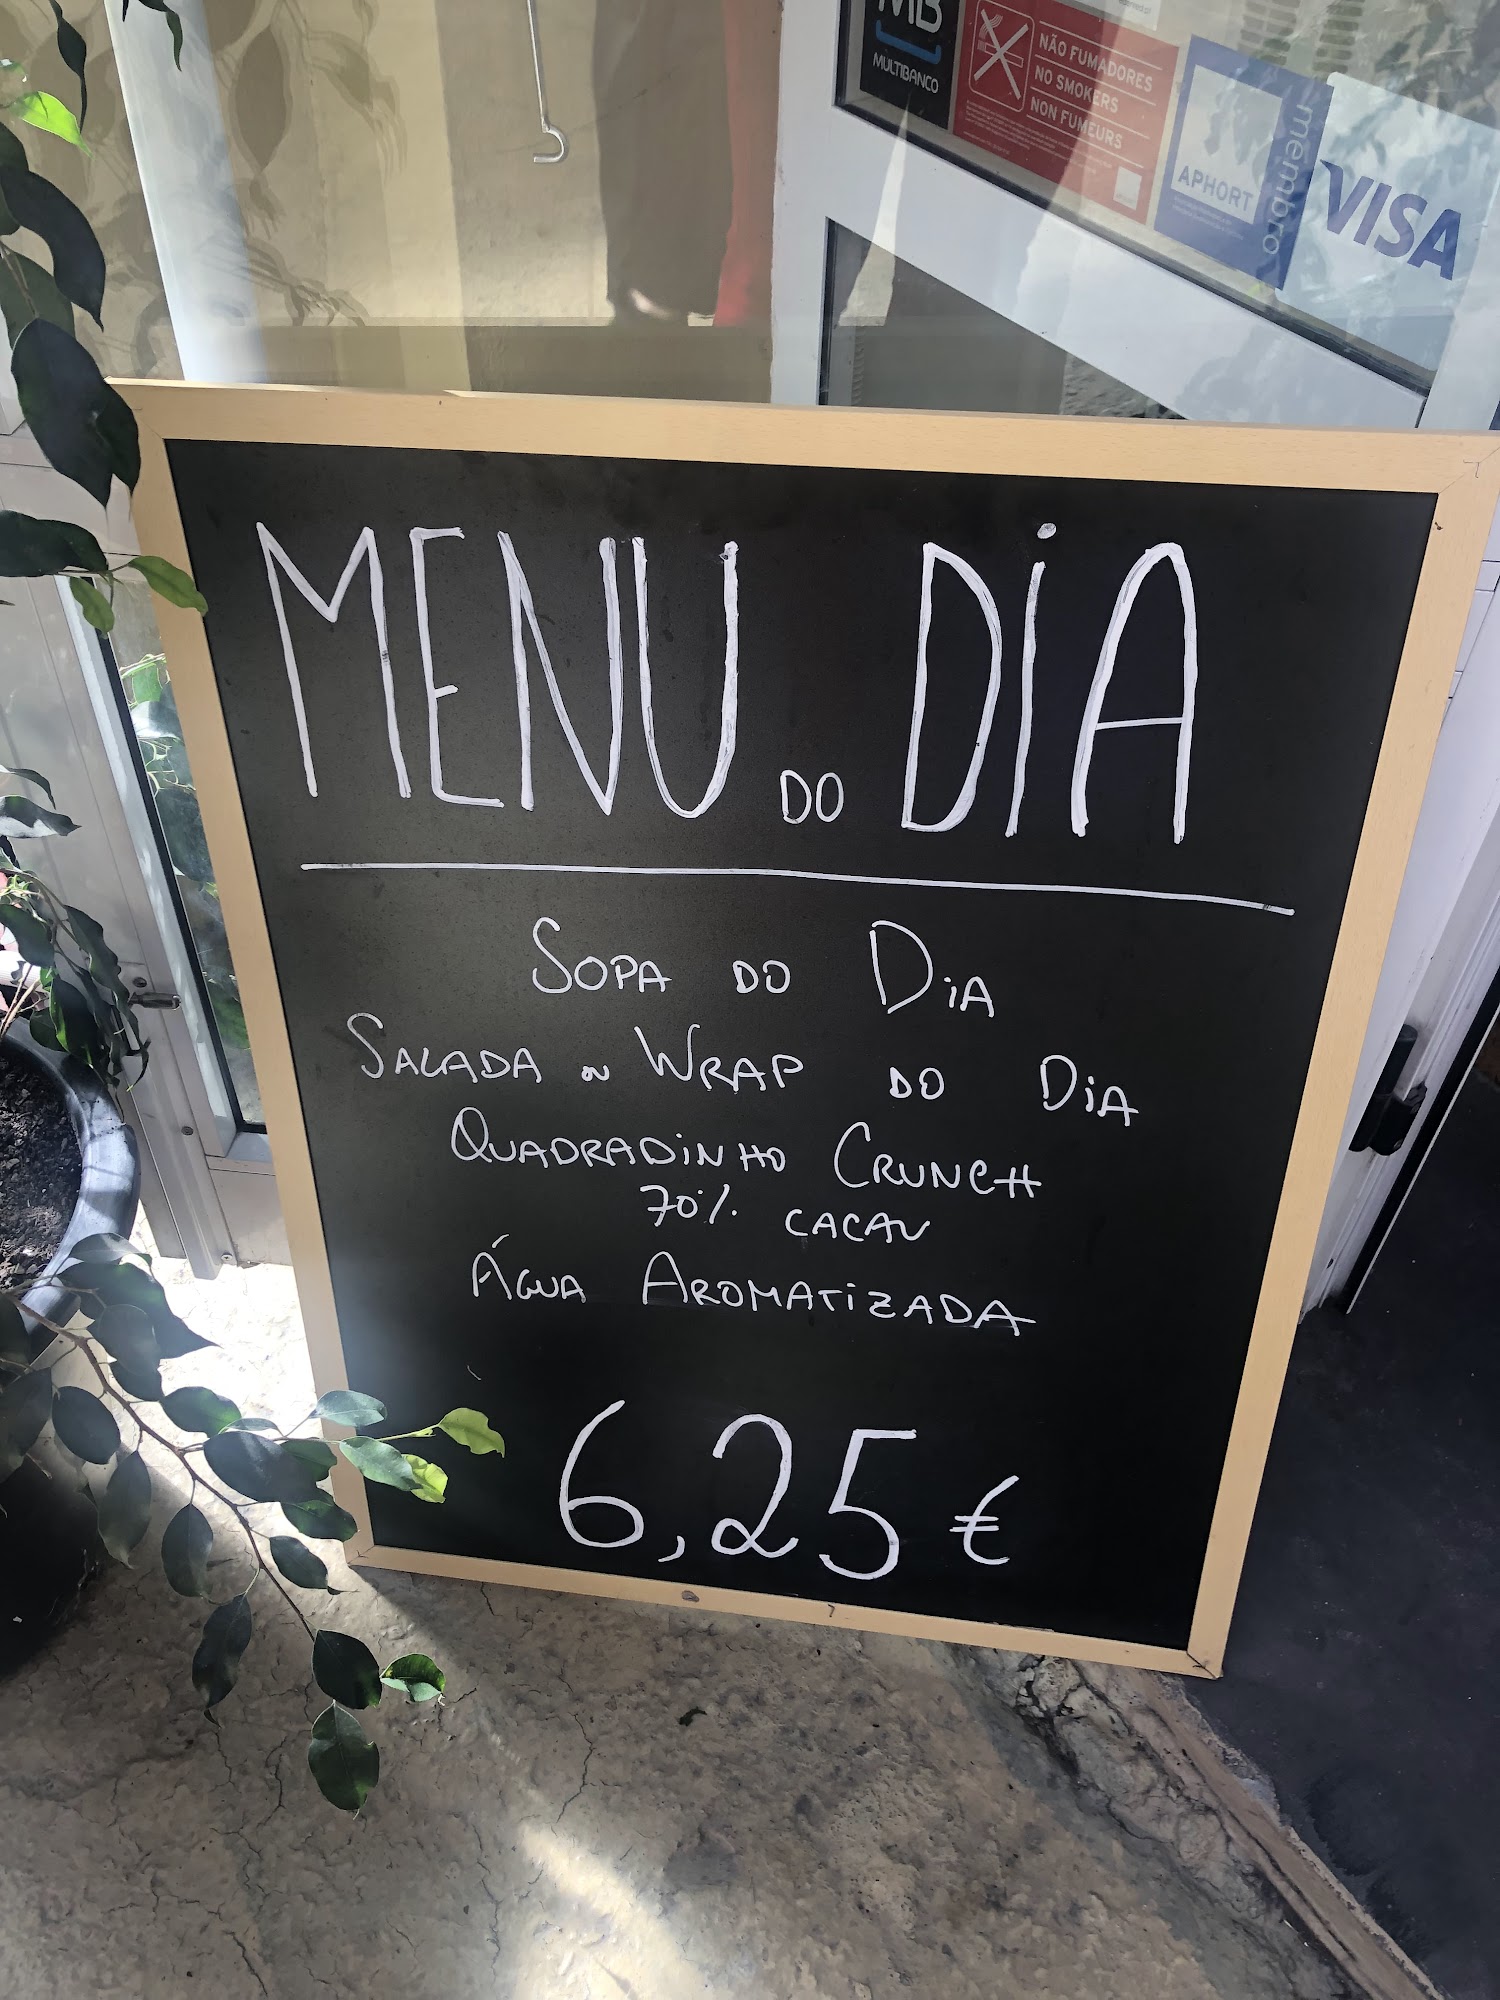 MB
MULTIBANCO
NÃO FUMADORES
NO SMOKERS
NON FUMEURS
APHORT
membro
VISA
MENU DO DiA
SOPA DO DiA
SALADA ou WRAP DO DiA
QUADRADiNHO CRUNCH
70% CACAU
ÁGUA AROMATiZADA
6,25 €